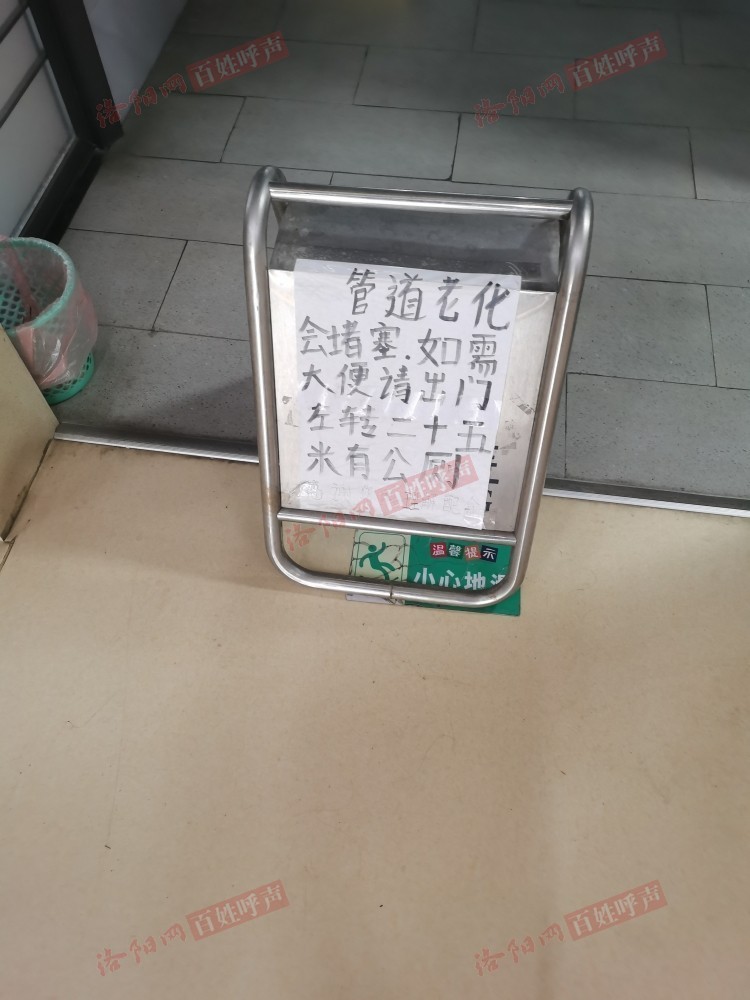 洛阳网 百姓呼声
洛阳网 百姓呼声
管道老化
会堵塞.如需
大便请出门
左转二十五
米有公厕
洛阳网 百姓呼声
洛阳网 百姓呼声
温馨提示
小心地
洛阳网 百姓呼声
洛阳网 百姓呼声